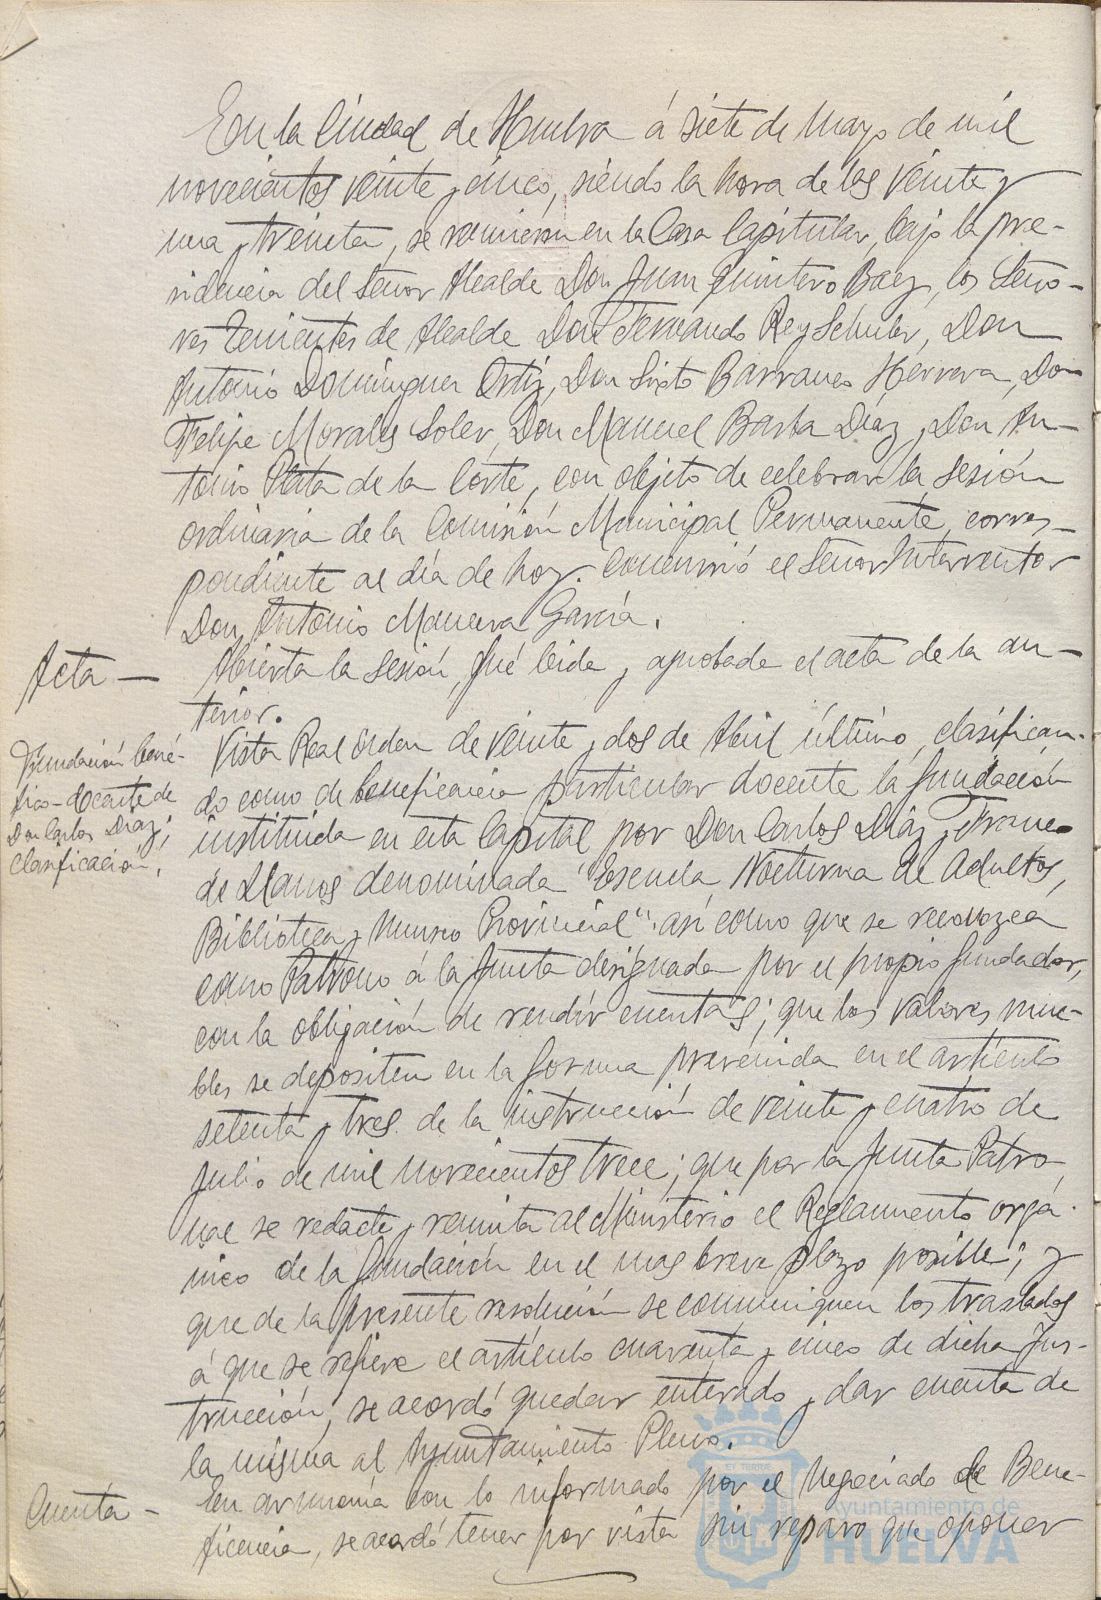 En la Ciudad de Huelva á siete de Mayo de mil
novecientos veinte y cinco, siendo la hora de las veinte y
una y treinta, se reunieron en la Casa Capitular, bajo la pre-
sidencia del Señor Alcalde Don Juan Quintero Baez, los Seño-
res Tenientes de Alcalde Don Fernando Rey Schuler, Don
Antonio Dominguez Ortiz, Don Sixto Barranco Herrera, Don
Felipe Morales Soler, Don Manuel Barba Díaz, Don An-
tonio Plata de la Corte, con objeto de celebrar la sesión
ordinaria de la Comisión Municipal Permanente, corres-
pondiente al día de hoy. Concurrió el Señor Interventor
Don Antonio García.
Acta —
Abierta la sesión, fué leida y aprobada el acta de la an-
terior.
Fundación bené-
fico-docente de
Don Carlos Díaz;
Clasificación.
Vista Real orden de veinte y dos de Abril último, clasifican-
do como de beneficencia particular docente la fundación
instituida en esta Capital por Don Carlos Díaz y Franco
de Llanos denominada "Escuela Nocturna de Adultos,
Biblioteca y Museo Provincial" así como que se reconozca
como Patrono á la Junta designada por el propio fundador,
con la obligación de rendir cuentas; que los valores mue-
bles se depositen en la forma prevenida en el artículo
setenta y tres de la instrucción de veinte y cuatro de
Julio de mil novecientos trece; que por la Junta Patro-
nal se redacte y remita al Ministerio el Reglamento orgá-
nico de la fundación en el mas breve plazo posible; y
que de la presente resolución se comuniquen los traslados
á que se refiere el artículo cuarenta y cinco de dicha Ins-
trucción, se acordó quedar enterado y dar cuenta de
la misma al Ayuntamiento Pleno.
Cuenta —
En armonía con lo informado por el Negociado de Bene-
ficencia, se acordó tener por vista sin reparo que oponer
Ayuntamiento de
HUELVA